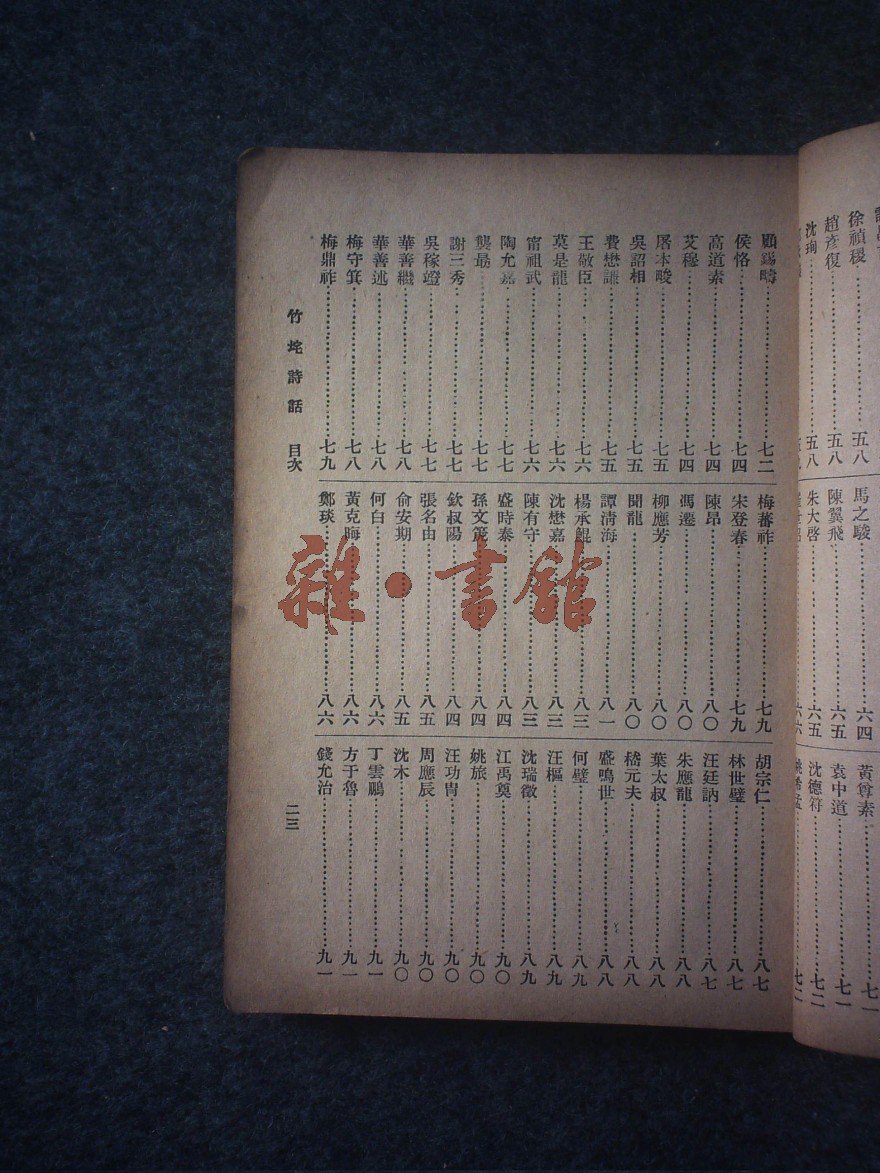 徐禎稷……五八
趙彥復……五八
沈珣……五八
馬之駿……六四
陳翼飛……六五
朱大啓……六五
六六
黃尊素……七一
袁中道……七一
沈德符……七二
姚希孟……七二
顧錫疇……七二
侯恪……七四
高道素……七四
艾穆……七四
屠本畯……七五
吳詔相……七五
費懋謙……七五
王敬臣……七六
莫是龍……七六
甯祖武……七六
陶允嘉……七七
龔勗……七七
謝三秀……七七
吳稼竳……七七
華善繼……七八
華善述……七八
梅守箕……七八
梅鼎祚……七九
梅蕃祚……七九
宋登春……七九
陳昂……八〇
馮遷……八〇
柳應芳……八〇
聞龍……八〇
譚清海……八一
楊承鯤……八三
沈懋嘉……八三
陳有守……八三
盛時泰……八四
孫文……八四
欽叔陽……八四
張名由……八五
俞安期……八五
何白……八六
黃克晦……八六
鄭琰……八六
胡宗仁……八七
林世璧……八七
汪廷訥……八七
朱應龍……八八
葉太叔……八八
嵇元夫……八八
盛鳴世……八八
何璧……八九
汪樞……八九
沈瑞徵……八九
江禹奠……九〇
姚旅……九〇
汪功冑……九〇
周應辰……九〇
沈木……九〇
丁雲鵬……九一
方于魯……九一
錢允治……九一
竹垞詩話 目次 二三
雜·書館